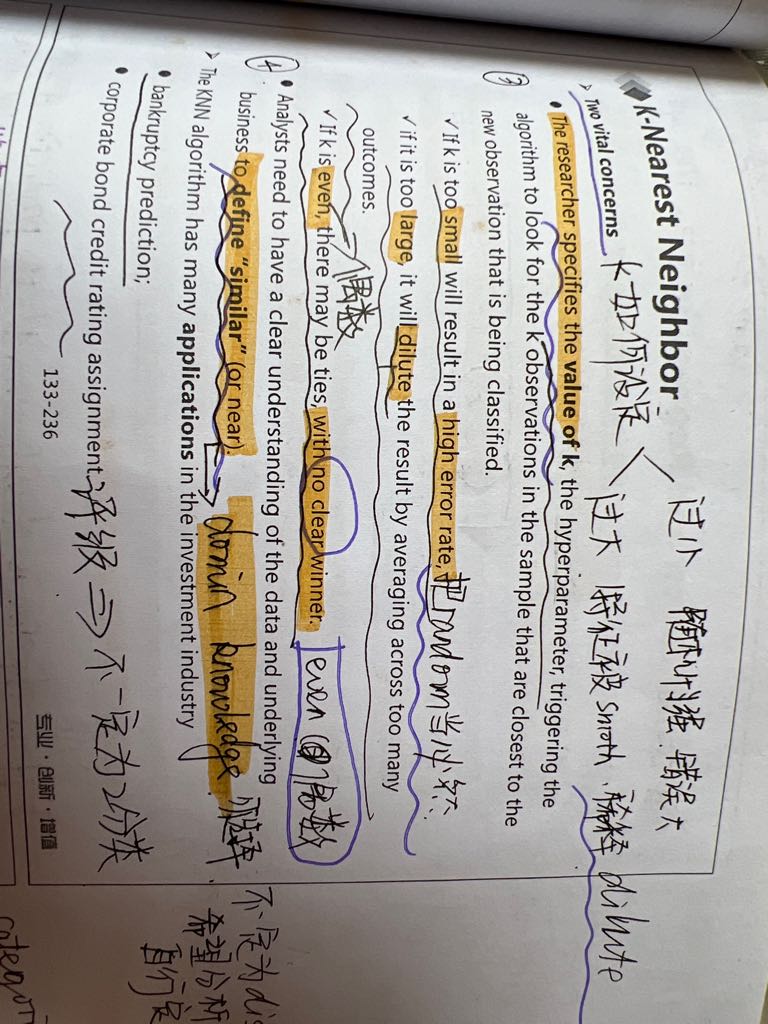 K-Nearest Neighbor
Two vital concerns
k如何设定
过小 随机性强 错误大
过大 特征被 smoth、稀释 dilute
The researcher specifies the value of k, the hyperparameter, triggering the
algorithm to look for the k observations in the sample that are closest to the
new observation that is being classified.
If k is too small will result in a high error rate,
把random当必然
if it is too large, it will dilute the result by averaging across too many
outcomes.
偶数
If k is even, there may be ties, with no clear winner.
even 偶数
Analysts need to have a clear understanding of the data and underlying
business to define "similar" (or near).
domin knowledge
The KNN algorithm has many applications in the investment industry
bankruptcy prediction;
corporate bond credit rating assignment
评级 ⇒ 不一定为2分类
133-236
专业·创新·增值
不定为di
希望分析
自行定
categori